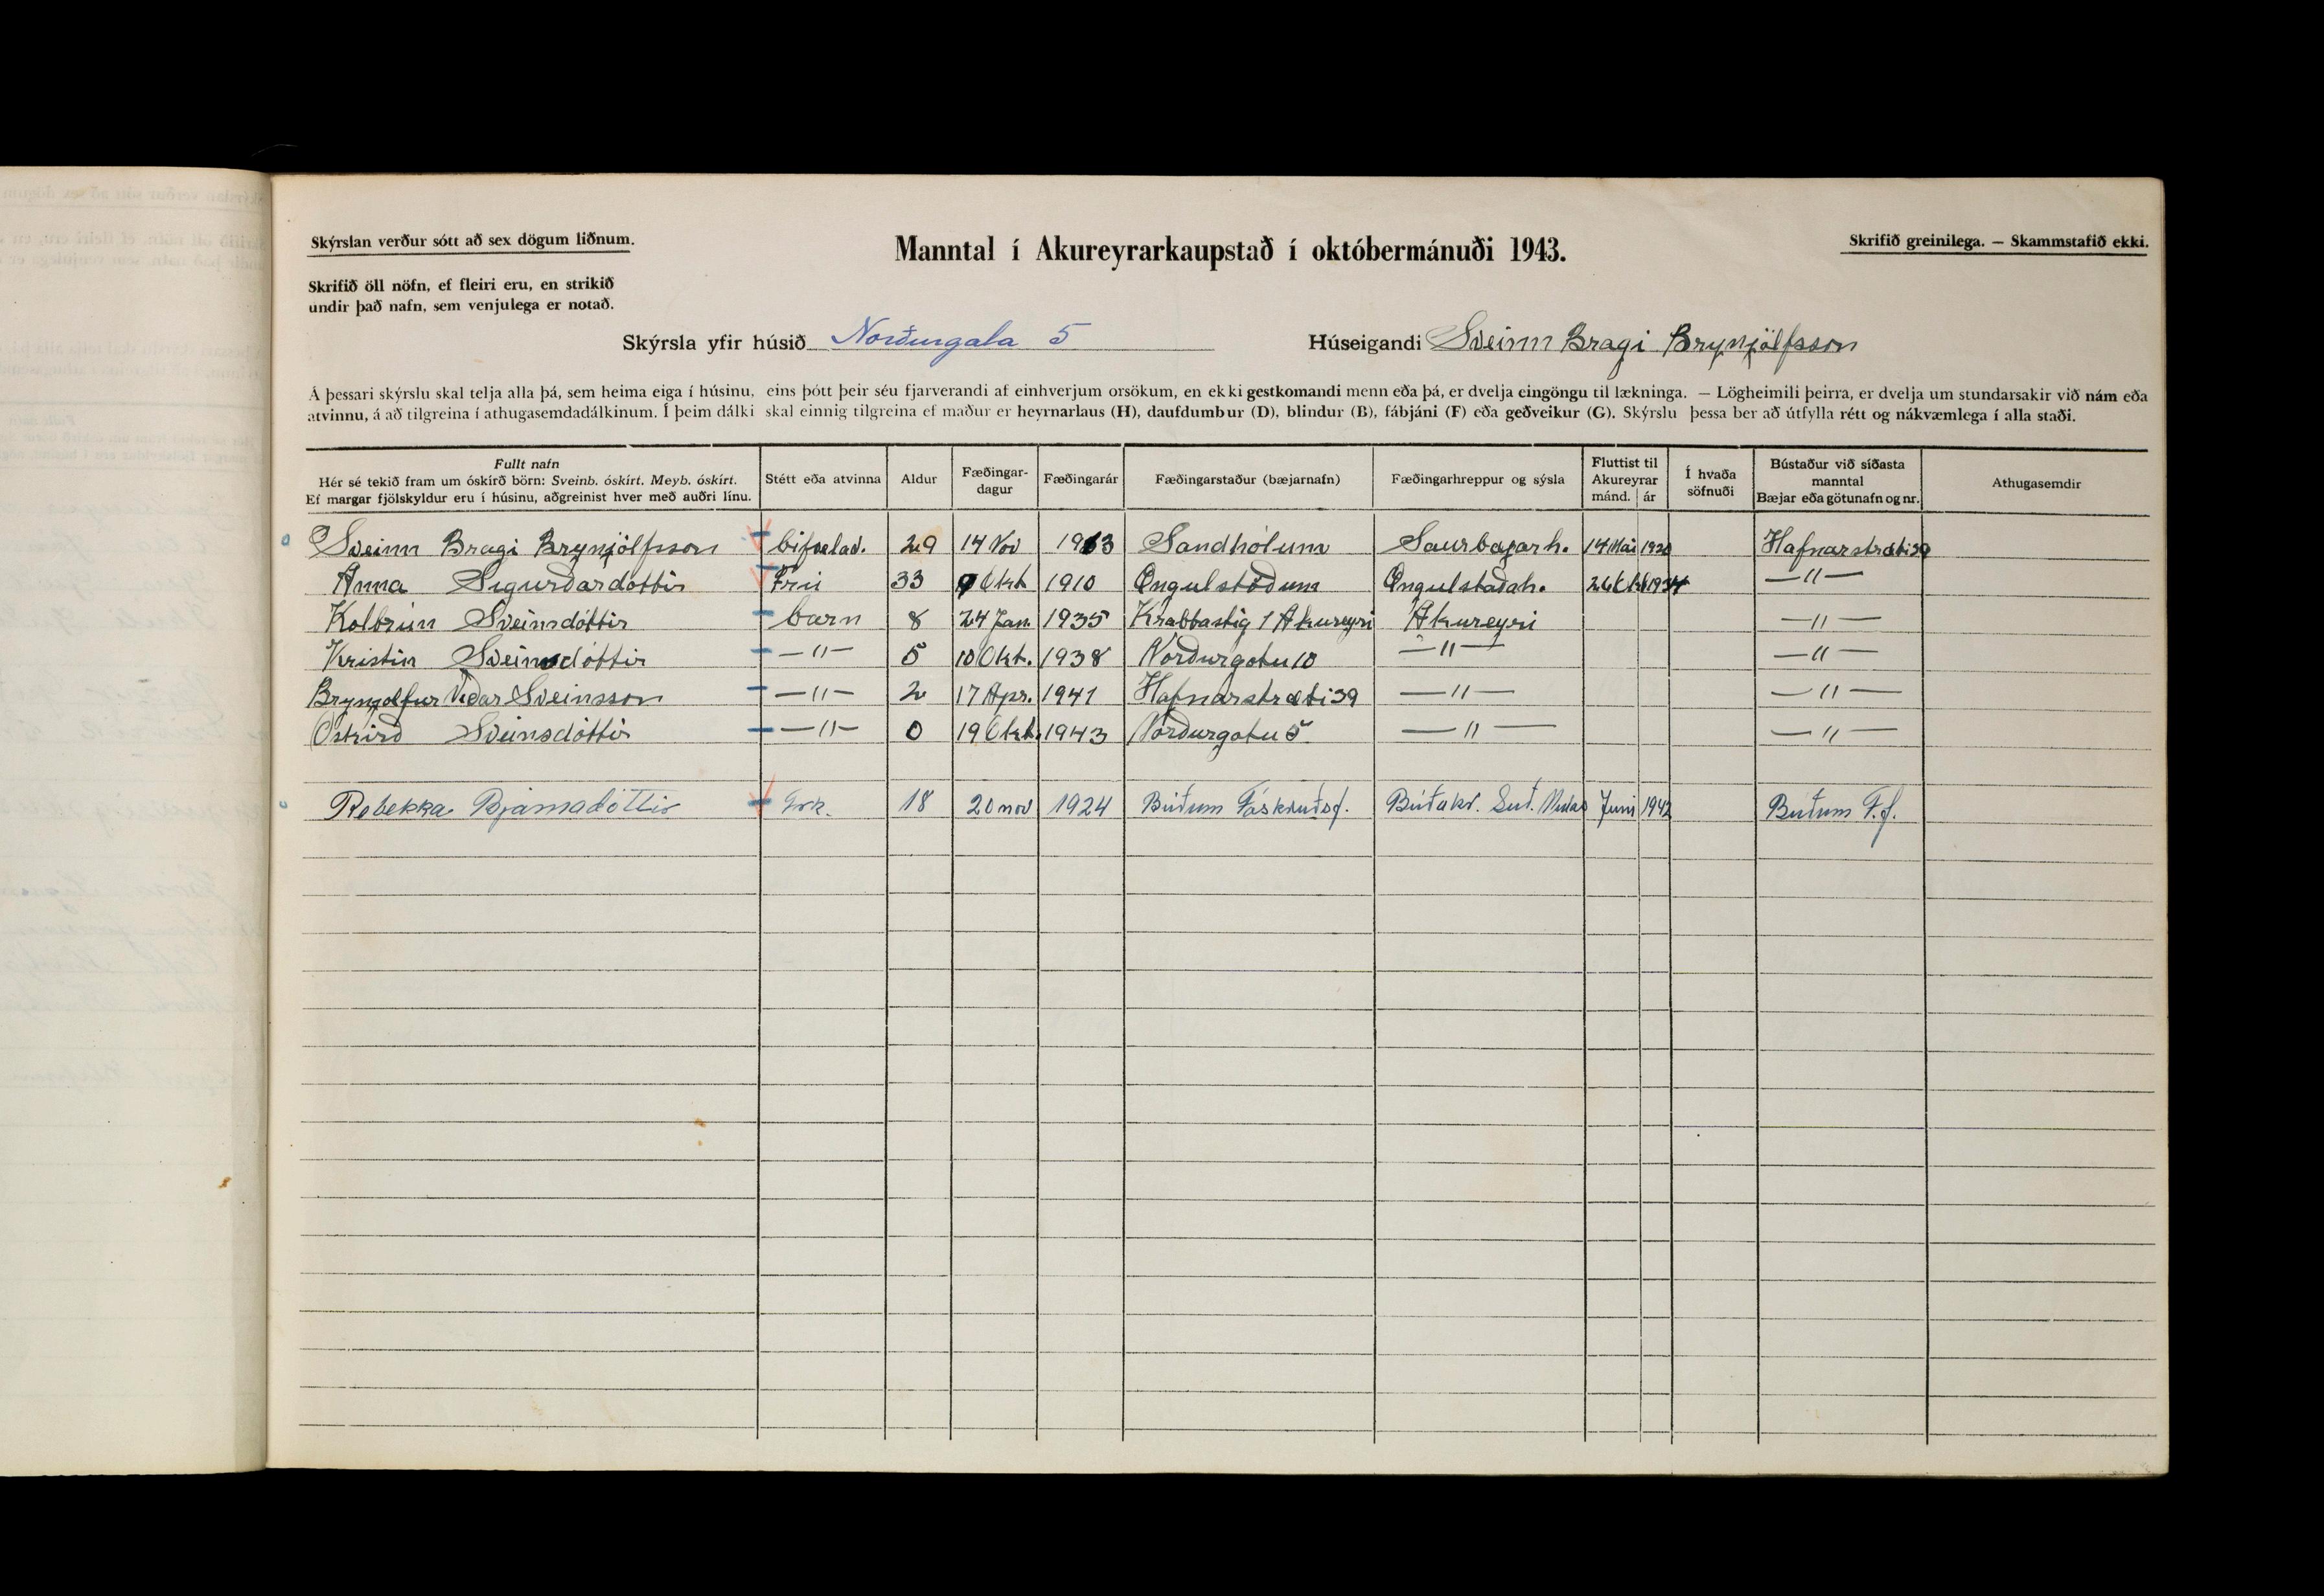 Skýrslan verður sótt að sex dögum liðnum.
Manntal í Akureyrarkaupstað í októbermánuði 1943.
Skrifið greinilega. — Skammstafið ekki.
Skrifið öll nöfn, ef fleiri eru, en strikið
undir það nafn, sem venjulega er notað.
Skýrsla yfir húsið Norðurgata 5 Húseigandi Sveinn Bragi Brynjólfsson
Á þessari skýrslu skal telja alla þá, sem heima eiga í húsinu, eins þótt þeir séu fjarverandi af einhverjum orsökum, en ekki gestkomandi menn eða þá, er dvelja eingöngu til lækninga. — Lögheimili þeirra, er dvelja um stundarsakir við nám eða
atvinnu, á að tilgreina í athugasemdadálkinum. Í þeim dálki skal einnig tilgreina ef maður er heyrnarlaus (H), daufdumbur (D), blindur (B), fábjáni (F) eða geðveikur (G). Skýrslu þessa ber að útfylla rétt og nákvæmlega í alla staði.
Fullt nafn
Hér sé tekið fram um óskírð börn: Sveinb. óskírt. Meyb. óskírt.
Ef margar fjölskyldur eru í húsinu, aðgreinist hver með auðri línu.
Stétt eða atvinna
Aldur
Fæðingar-
dagur
Fæðingarár
Fæðingarstaður (bæjarnafn)
Fæðingarhreppur og sýsla
Fluttist til
Akureyrar
mánd. ár
Í hvaða
söfnuði
Bústaður við síðasta
manntal
Bæjar eða götunafn og nr.
Athugasemdir
Sveinn Bragi Brynjólfsson 29 14 Nov 1913 Sandhólum Saurbæjarh. 14 Mai Hafnarstræti 39
Anna Sigurðardóttir Frú 33 9 Okt 1910 Öngulstöðum Öngulstaðah. 26 Okt 1934 —"—
Kolbrún Sveinsdóttir barn 8 24 Jan. 1935 Krabbastíg 1 Akureyri Akureyri —"—
Kristín Sveinsdóttir —"— 5 10 Okt. 1938 Norðurgötu 10 —"— —"—
Brynjolfur Viðar Sveinsson —"— 2 17 Apr. 1941 Hafnarstræti 39 —"— —"—
Óskírð Sveinsdóttir —"— 0 19 Okt. 1943 Norðurgötu 5 —"— —"—
Rebekka Bjarnadóttir 18 20 nov 1924 Búðum Fáskrúðsf. Búðakr. Suð. Múlas Juni 1942 Búðum F.f.